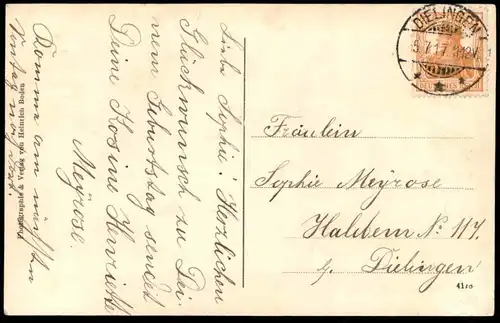 Liebe Sophie! Herzlichen
Glückwunsch zu Dei-
nem Geburtstag sendet
Deine Kosine Henriette
Meÿrose.
Komme am nächsten
Sonntag
Photographie & Verlag von Heinrich Boden
DIELINGEN
5.7.17
Fräulein
Sophie Meÿrose
Haldem No 117.
b. Dielingen